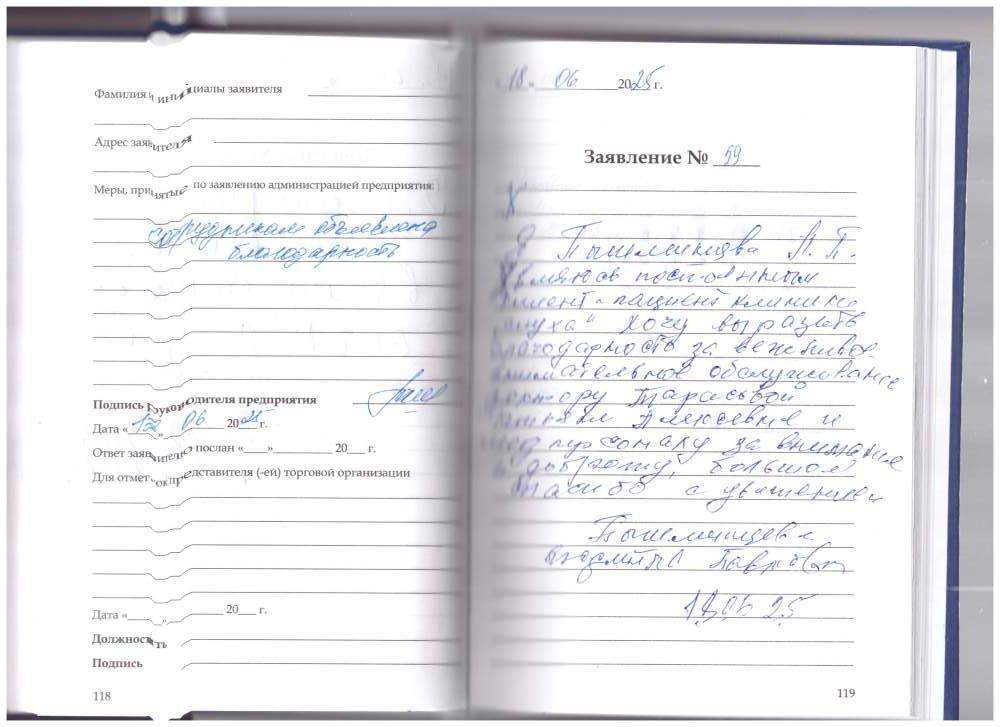 Фамилия и инициалы заявителя
Адрес заявителя
Меры, принятые по заявлению администрацией предприятия:
Сотрудникам объявлена
благодарность
Подпись руководителя предприятия
Дата « » 06 2025 г.
Ответ заявителю послан « » 20 г.
Для отметок представителя (-ей) торговой организации
Дата « » 20 г.
Должность
Подпись
118
18 » 06 2025 г.
Заявление № 59
Я Пышминцева Л. П.
являюсь постоянным
клиент-пациент клиники
слуха" хочу выразить
благодарность за вежливое
внимательное обслуживание
доктору Тарасовой
Алексевне и
мед персоналу за внимание
и доброту, большое
спасибо с уважением
Пышминцева
119